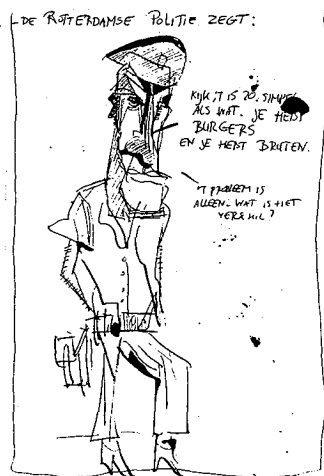 DE ROTTERDAMSE POLITIE ZEGT:
KIJK, 'T IS ZO. SIMPEL
ALS WAT. JE HEBT
BURGERS
EN JE HEBT BRUTEN.
'T PROBLEEM IS
ALLEEN. WAT IS HET
VERSCHIL?